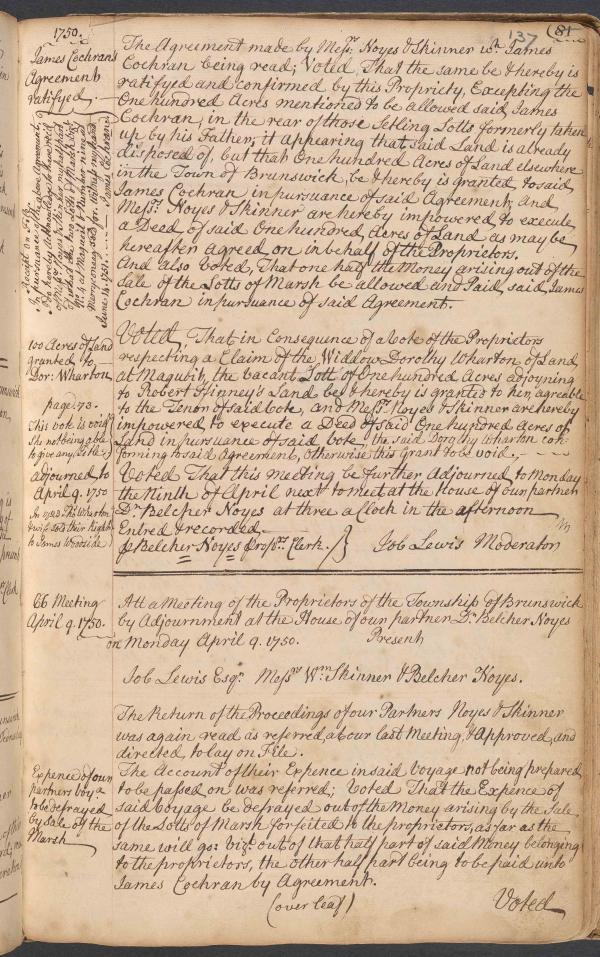 1750.
137 (81
James Cochran's
Agreement
ratifyed
The Agreement made by Messrs. Noyes & Skinner wth. James
Cochran being read; Voted, That the same be & hereby is
ratifyed and confirmed by this Propriety, Excepting the
One hundred Acres mentioned to be allowed said James
Cochran, in the rear of those Setling Lotts formerly taken
up by his Father, it appearing that said Land is already
disposed of, but that One hundred Acres of Land elsewhere
in the Town of Brunswick, be & hereby is granted to said
James Cochran in pursuance of said Agreement, and
Messrs. Noyes & Skinner are hereby impowered to execute
a Deed of said One hundred Acres of Land as may be
hereafter agreed on in behalf of the Proprietors.
And also Voted, That one half the Money arising out of the
Sale of the Lotts of Marsh be allowed and Paid, said James
Cochran in pursuance of said Agreement.
Receipt on File
In pursuance of the above Agreement, I
do hereby acknowledge to have recd
June 14. 1751. James Cochran
100 Acres of Land
granted to
Dor: Wharton
Voted, That in Consequence of a Vote of the Proprietors
respecting a Claim of the Widdow Dorothy Wharton of Land
at Maquoit, the vacant Lott of One hundred Acres adjoyning
to Robert Finney's Land be & hereby is granted to her, agreable
to the Tenor of said Vote, and Messrs. Noyes & Skinner are hereby
impowered to execute a Deed of said One hundred Acres of
Land in pursuance of said Vote, the said Dorothy Wharton con-
forming to said Agreement, otherwise this Grant to be void.
page. 73.
This Vote is void
She not being able
to give any Title
adjourned to
April 9. 1750
Voted That this meeting be further Adjourned to Monday
the Ninth of April next to meet at the House of our partner
Dr. Belcher Noyes at three a Clock in the afternoon
In 1752 Tho Wharton
& wife sold their Right
to James Woodside
Entred & recorded
p Belcher Noyes Proprs. Clerk.
Job Lewis Moderator
66 Meeting
April 9. 1750.
Att a Meeting of the Proprietors of the Township of Brunswick
by Adjournment at the House of our partner Dr. Belcher Noyes
on Monday April 9. 1750. Present
Job Lewis Esqr. Messrs Wm. Skinner & Belcher Noyes.
The Return of the Proceedings of our Partners Noyes & Skinner
was again read as referred, at our last Meeting, & Approved, and
directed, to lay on File.
Expence of our
partners Voya
to be defrayed
by Sale of the
Marsh
The Account of their Expence in said Voyage not being prepared
to be passed on was referred; Voted That the Expence of
said Voyage be defrayed out of the Money arising by the Sale
of the Lotts of Marsh forfeited to the proprietors, as far as the
same will go: vizt. out of that half part of said Money belonging
to the proprietors, the other half part being to be paid unto
James Cochran by Agreement.
(over leaf)
Voted